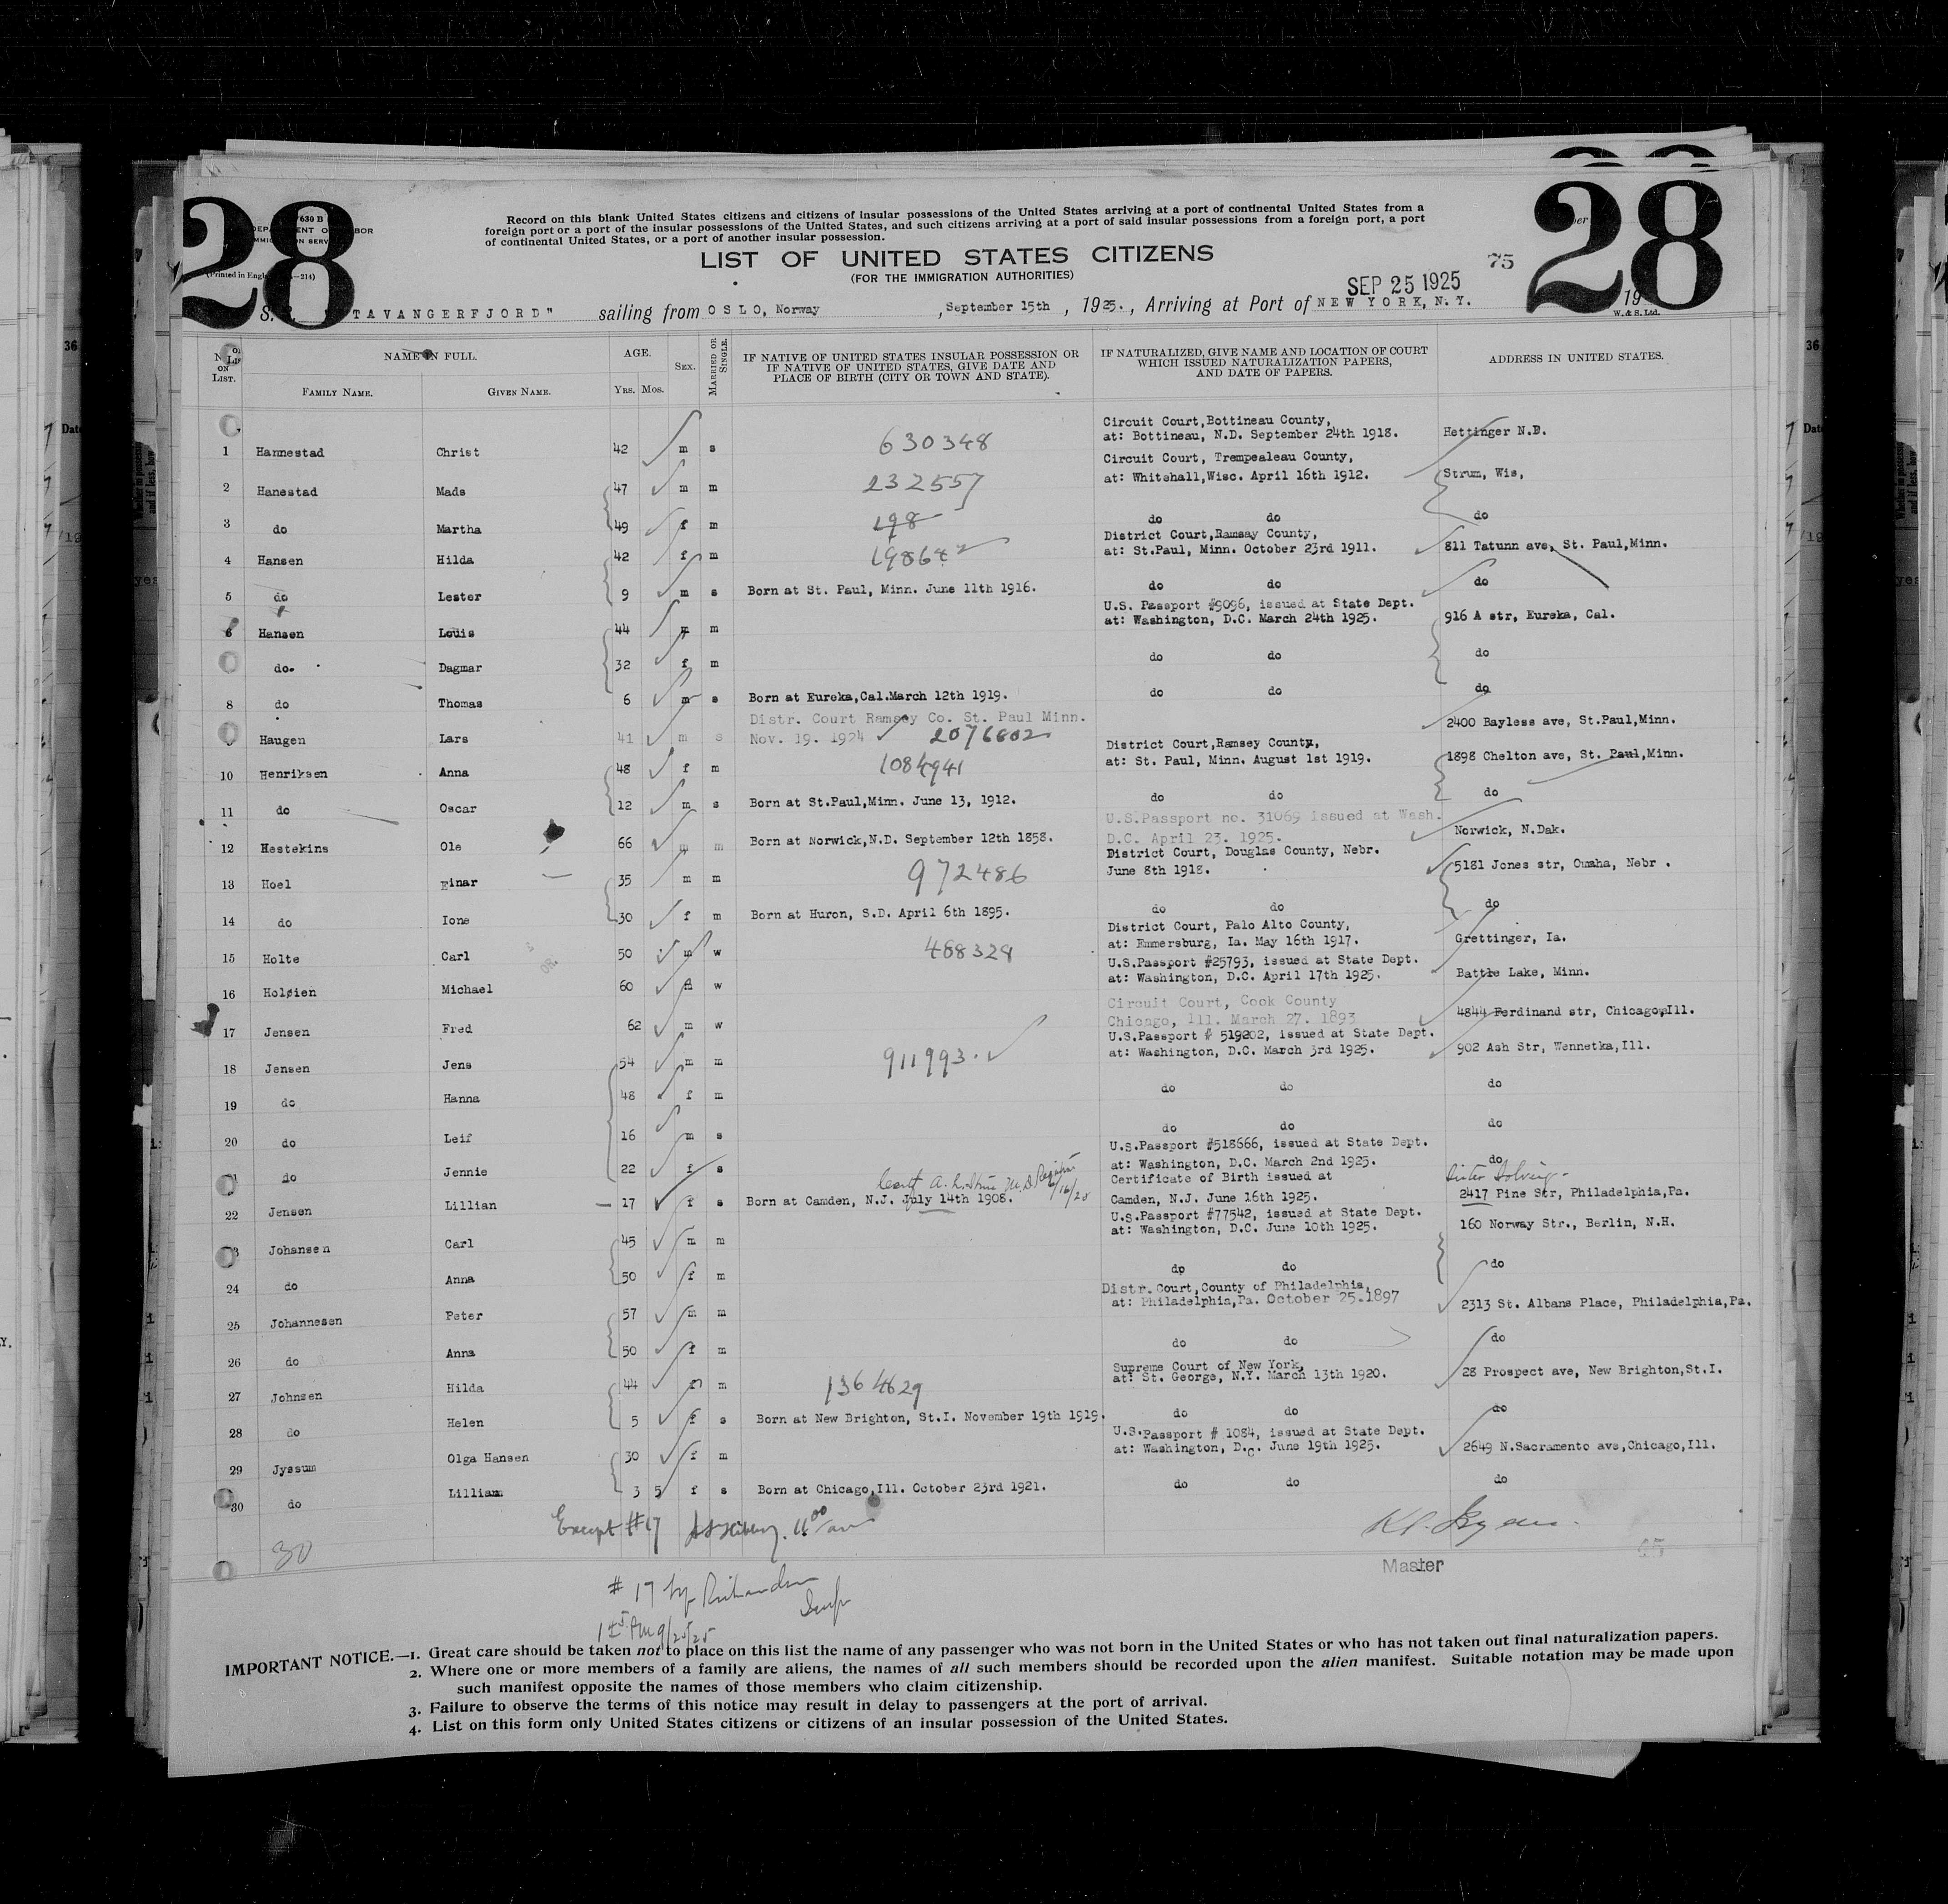 28
630 B
28
Record on this blank United States citizens and citizens of insular possessions of the United States arriving at a port of continental United States from a
foreign port or a port of the insular possessions of the United States, and such citizens arriving at a port of said insular possessions from a foreign port, a port
of continental United States, or a port of another insular possession.
LIST OF UNITED STATES CITIZENS
(FOR THE IMMIGRATION AUTHORITIES)
75
SEP 25 1925
TAVANGERFJORD" sailing from OSLO, Norway, September 15th, 1925., Arriving at Port of NEW YORK, N.Y. 19
W. & S. Ltd.
ON LIST. NAME IN FULL. AGE. SEX. MARRIED OR SINGLE. IF NATIVE OF UNITED STATES INSULAR POSSESSION OR IF NATIVE OF UNITED STATES, GIVE DATE AND PLACE OF BIRTH (CITY OR TOWN AND STATE). IF NATURALIZED, GIVE NAME AND LOCATION OF COURT WHICH ISSUED NATURALIZATION PAPERS, AND DATE OF PAPERS. ADDRESS IN UNITED STATES.
FAMILY NAME. GIVEN NAME. YRS. MOS.
Circuit Court, Bottineau County,
1 Hannestad Christ 42 m s 630348 at: Bottineau, N.D. September 24th 1918. Hettinger N.D.
Circuit Court, Trempealeau County,
2 Hanestad Mads 47 m m 232557 at: Whitehall, Wisc. April 16th 1912. Strum, Wis,
3 do Martha 49 f m 198 do do do
District Court, Ramsay County,
4 Hansen Hilda 42 f m at: St.Paul, Minn. October 23rd 1911. 811 Tatunn ave, St. Paul, Minn.
5 do Lester 9 m s Born at St. Paul, Minn. June 11th 1916. do do do
U.S. Passport #9096, issued at State Dept.
6 Hansen Louis 44 m m at: Washington, D.C. March 24th 1925. 916 A str, Eureka, Cal.
do. Dagmar 32 f m do do do
8 do Thomas 6 m s Born at Eureka, Cal. March 12th 1919. do do do
Distr. Court Ramsey Co. St. Paul Minn.
Haugen Lars 41 m s Nov. 19. 1924 2076802 2400 Bayless ave, St.Paul, Minn.
District Court, Ramsey County,
10 Henriksen Anna 48 f m 1084941 at: St. Paul, Minn. August 1st 1919. 1898 Chelton ave, St. Paul, Minn.
11 do Oscar 12 m s Born at St.Paul, Minn. June 13, 1912. do do do
U.S.Passport no. 31069 issued at Wash.
12 Hestekins Ole 66 m m Born at Norwick, N.D. September 12th 1858. D.C. April 23. 1925. Norwick, N.Dak.
District Court, Douglas County, Nebr.
13 Hoel Einar 35 m m 972486 June 8th 1918. 5181 Jones str, Omaha, Nebr.
14 do Ione 30 f m Born at Huron, S.D. April 6th 1895. do do do
District Court, Palo Alto County,
15 Holte Carl 50 m w 488328 at: Emmersburg, Ia. May 16th 1917. Grettinger, Ia.
U.S.Passport #25793, issued at State Dept.
16 Holøien Michael 60 w at: Washington, D.C. April 17th 1925. Battle Lake, Minn.
Circuit Court, Cook County
17 Jensen Fred 62 m w Chicago, Ill. March 27. 1893 4844 Ferdinand str, Chicago, Ill.
U.S.Passport # 519202, issued at State Dept.
18 Jensen Jens 54 m m 911993. at: Washington, D.C. March 3rd 1925. 902 Ash Str, Wennetka, Ill.
19 do Hanna 48 f m do do do
20 do Leif 16 m s do do do
U.S.Passport #518666, issued at State Dept.
do Jennie 22 f s at: Washington, D.C. March 2nd 1925. do
Certificate of Birth issued at
22 Jensen Lillian 17 f s Born at Camden, N.J. July 14th 1908. Camden, N.J. June 16th 1925. 2417 Pine Str, Philadelphia, Pa.
U.S.Passport #77542, issued at State Dept.
Johansen Carl 45 m m at: Washington, D.C. June 10th 1925. 160 Norway Str., Berlin, N.H.
24 do Anna 50 f m dp do do
Distr. Court, County of Philadelphia,
25 Johannesen Peter 57 m m at: Philadelphia, Pa. October 25.1897 2313 St. Albans Place, Philadelphia, Pa.
26 do Anna 50 f m do do do
Supreme Court of New York,
27 Johnsen Hilda 44 m 1364629 at: St. George, N.Y. March 13th 1920. 28 Prospect ave, New Brighton, St.I.
28 do Helen 5 f s Born at New Brighton, St.I. November 19th 1919. do do do
U.S.Passport # 1084, issued at State Dept.
29 Jyssum Olga Hansen 30 f m at: Washington, D.C. June 19th 1925. 2649 N.Sacramento ave, Chicago, Ill.
30 do Lilliam 3 5 f s Born at Chicago, Ill. October 23rd 1921. do do do
Except #17
30
Master
# 17 by Richardson
Insp
IMPORTANT NOTICE.—1. Great care should be taken not to place on this list the name of any passenger who was not born in the United States or who has not taken out final naturalization papers.
2. Where one or more members of a family are aliens, the names of all such members should be recorded upon the alien manifest. Suitable notation may be made upon
such manifest opposite the names of those members who claim citizenship.
3. Failure to observe the terms of this notice may result in delay to passengers at the port of arrival.
4. List on this form only United States citizens or citizens of an insular possession of the United States.